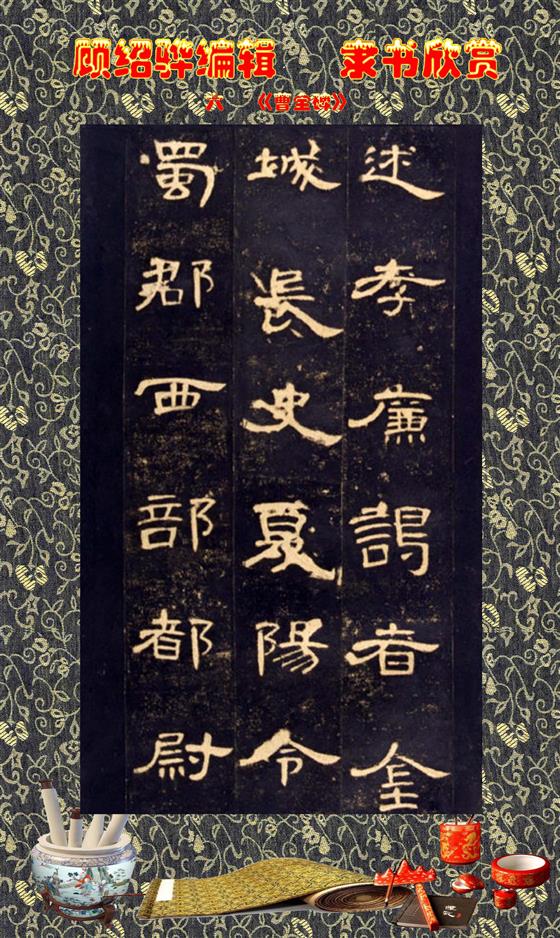 顾绍骅编辑 隶书欣赏
六 《曹全碑》
述孝廉謁者金
城長史夏陽令
蜀郡西部都尉